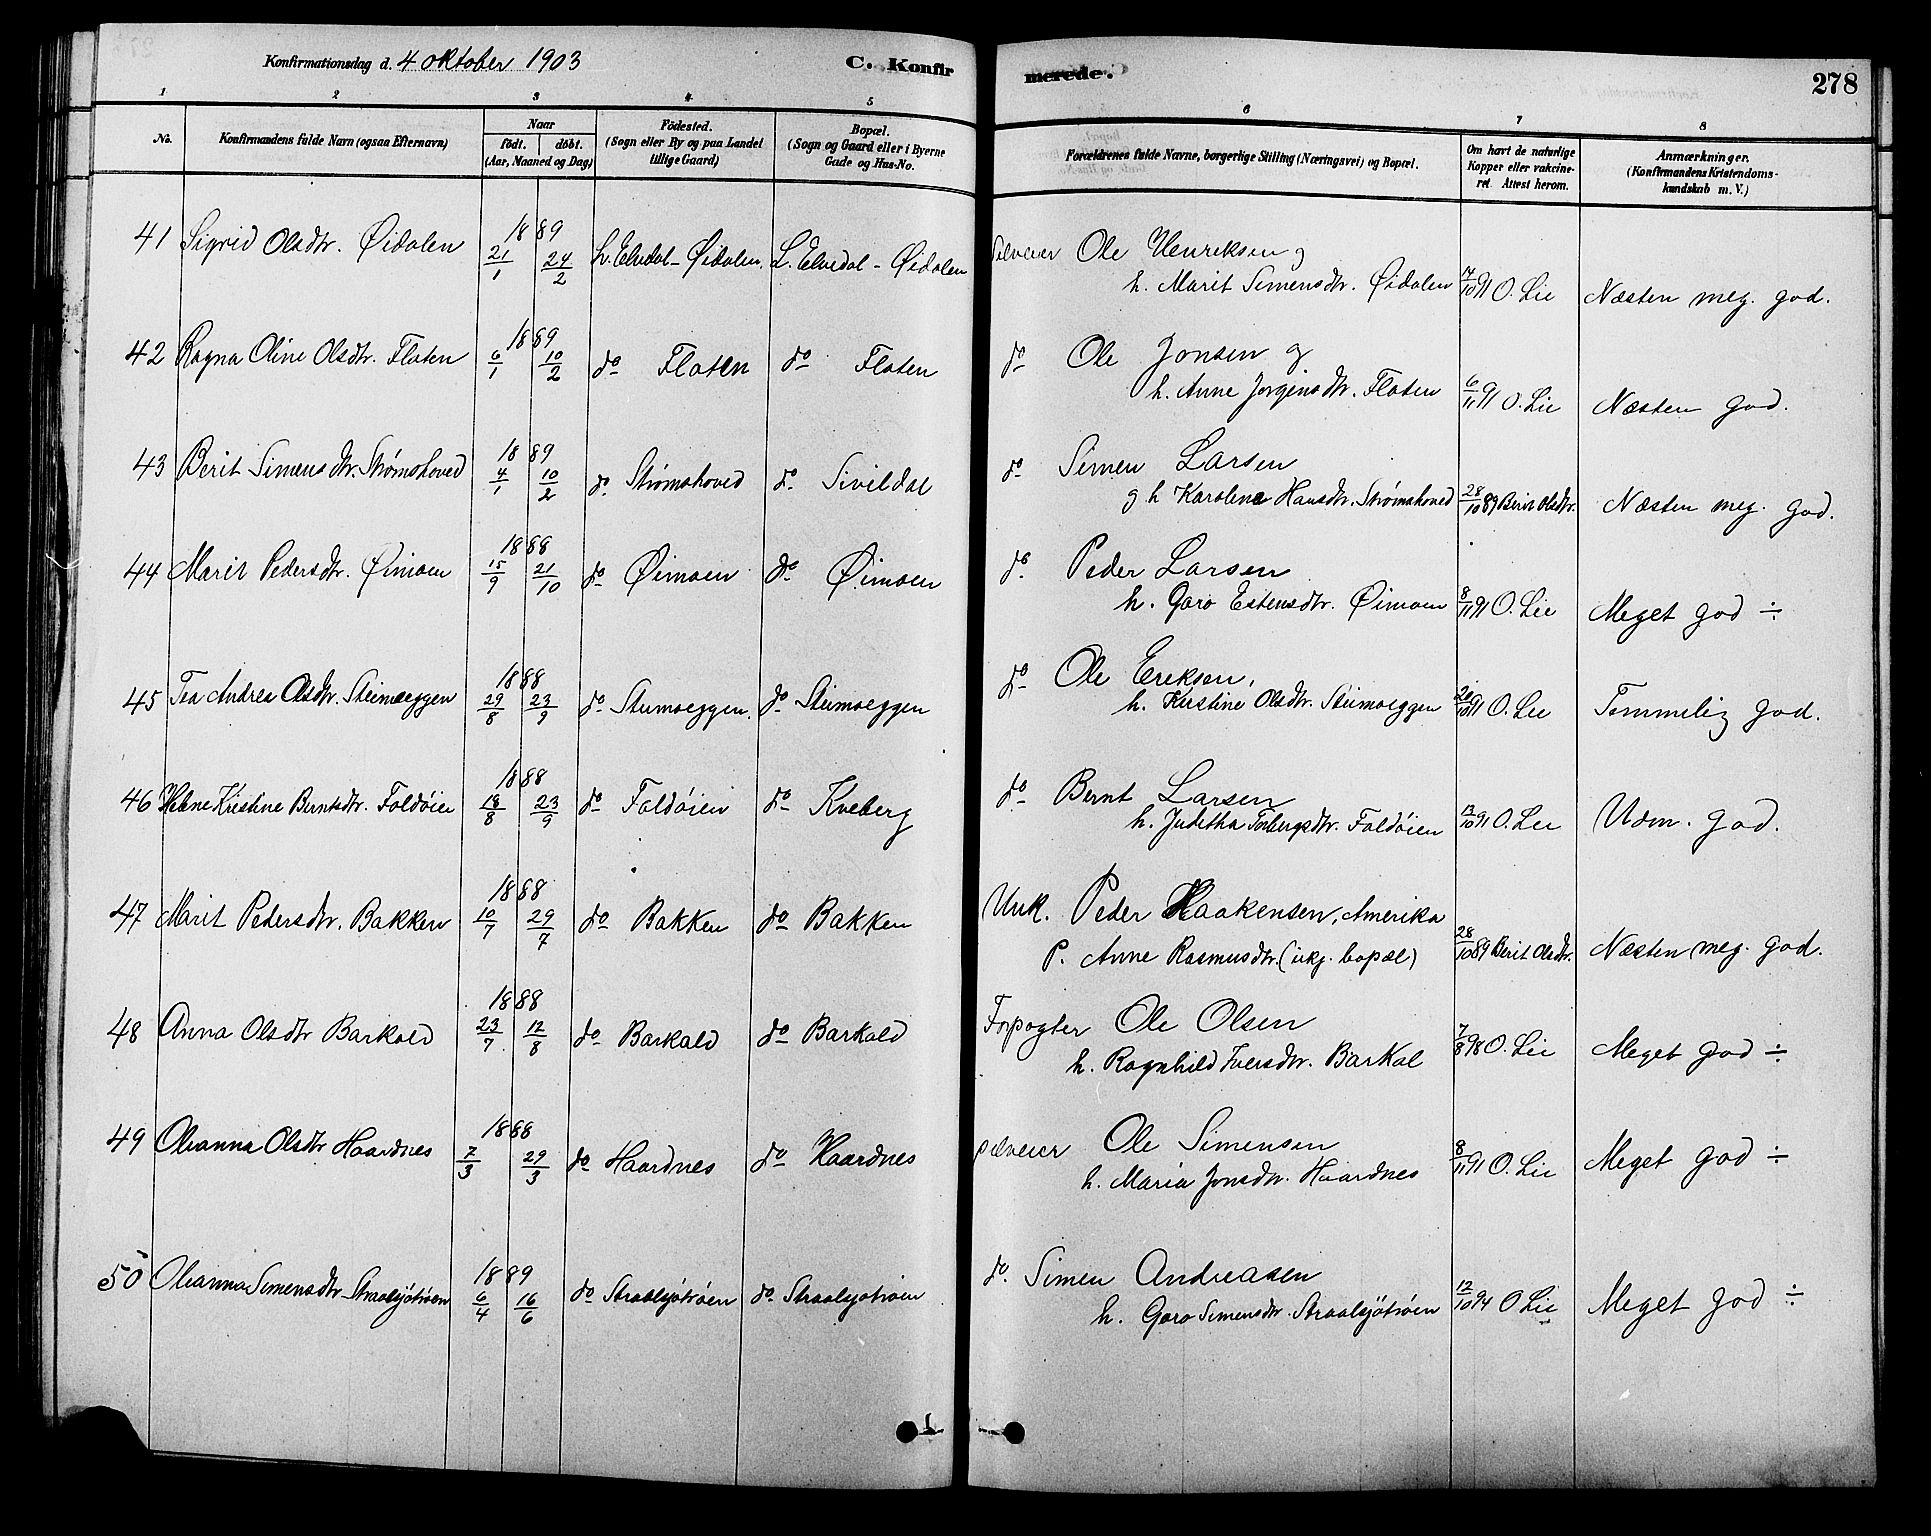 Konfirmationsdag d. 4 oktober 1903
C. Konfirmerede.
278
1 2 3 4 5 6 7 8
No. Konfirmandens fulde Navn (ogsaa Efternavn)
Naar
födt. döbt.
(Aar, Maaned og Dag)
Födested.
(Sogn eller By og paa Landet
tillige Gaard)
Bopæl.
(Sogn og Gaard eller i Byerne
Gade og Hus-No.
Forældrenes fulde Navne, borgerlige Stilling (Næringsvei) og Bopæl.
Om havt de naturlige
Kopper eller vakcine-
ret. Attest herom.
Anmærkninger.
(Konfirmandens Kristendoms-
kundskab m. V.)
1889
41 Sigrid Olsdtr. Øidalen 21/1 24/2 L. Elvedal - Øidalen. L. Elvedal - Øidalen Selveier Ole Henriksen og
h. Marit Simensdtr. Øidalen 14/10 91 O. Lie Næsten meg. god.
1889
42 Ragna Oline Olsdtr. Flaten 6/1 10/2 do Flaten do Flaten do Ole Jonsen og
h. Anne Jorgensdtr. Flaten 6/11 91 O. Lie Næsten god.
1889
43 Berit Simensdtr. Strømshoved 4/1 10/2 do Strømshoved do Sivildal do Simen Larsen
og h Karoline Hansdtr. Strømshoved 28/10 89 Berit Olsdtr. Næsten meg. god.
1888
44 Marit Pedersdtr. Øimoen 15/9 21/10 do Øimoen do Øimoen do Peder Larsen
h. Goro Estensdtr. Øimoen 8/11 91 O. Lie Meget god ÷
1888
45 Tea Andrea Olsdtr. Steimoeggen 29/8 23/9 do Steimoeggen. do Steimoeggen do Ole Eriksen,
h. Kirstine Olsdtr. Steimoeggen 20/10 91 O. Lie Temmelig god.
1888
46 Helene Kristine Berntsdtr. Foldøien 18/8 23/9 do Foldøien do Kveberg do Bernt Larsen
h. Juditha Torbergsdtr. Foldøien 13/10 91 O. Lie Udm. god.
1888
47 Marit Pedersdtr. Bakken 10/7 29/7 do Bakken do Bakken Unk. Peder Haakensen, Amerika
P. Anne Rasmusdtr. (ukj. bopæl) 28/10 89 Berit Olsdtr. Næsten meg. god.
1888
48 Anna Olsdtr Barkald 23/7 12/8 do Barkald do Barkald Forpagter Ole Olsen
h. Ragnhild Iversdtr. Barkal 7/8 98 O. Lie Meget god ÷
1888
49 Oleanna Olsdtr Haardnes 7/3 29/3 do Haardnes do Haardnes Selveier Ole Simensen
h. Maria Jonsdtr. Haardnes 8/11 91 O. Lie Meget god ÷
1889
50 Oleanna Simensdtr Straalsjötrøen 6/4 16/6 do Straalsjötrøen do Straalsjotrøen do. Simen Andreasen
h. Goro Simensdtr Straalsjötrøen 12/10 94 O Lie Meget god ÷